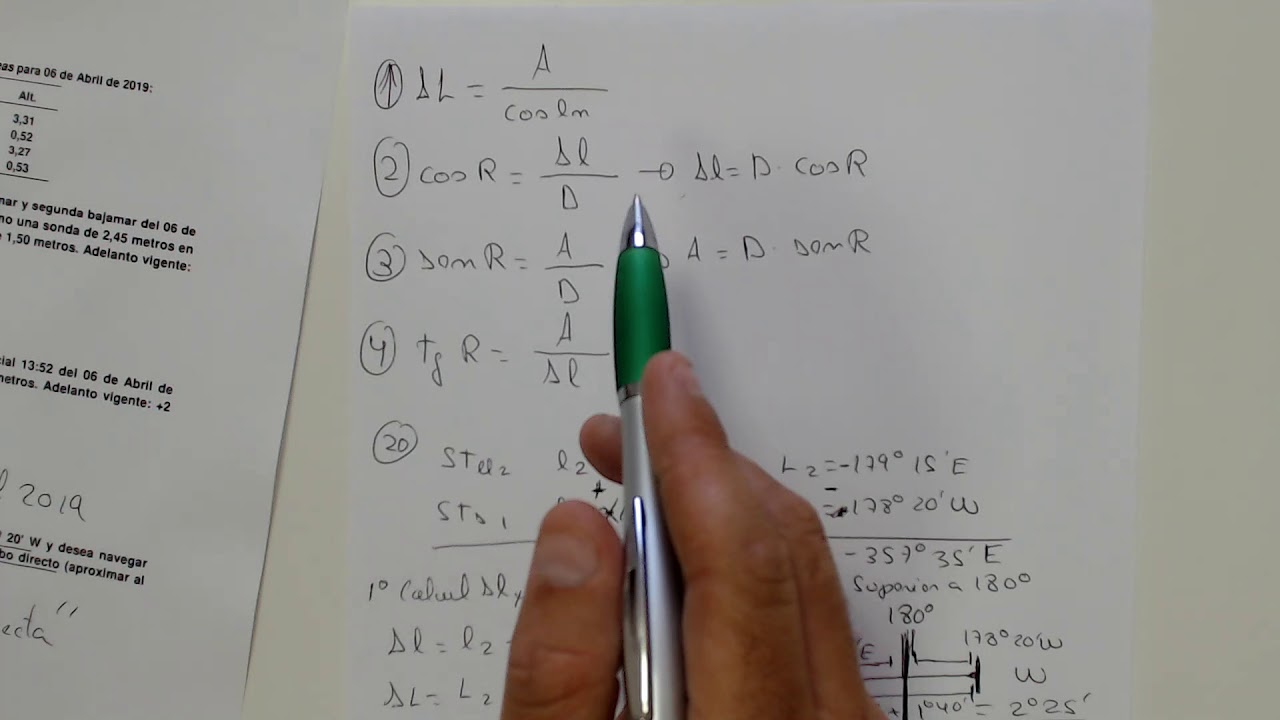 eas para 06 de Abril de 2019:
Alt.
3,31
0,52
3,27
0,53
mar y segunda bajamar del 06 de
no una sonda de 2,45 metros en
e 1,50 metros. Adelanto vigente:
cial 13:52 del 06 de Abril de
metros. Adelanto vigente: +2
l 2019
20' W y desea navegar
bo directo (aproximar al
ecta"
1 ΔL = A / cos lm
2 cos R = Δl / D → Δl = D · cos R
3 sen R = A / D A = D · sen R
4 tg R = A / Δl
20
l2 L2 = -179° 15' E
- 178° 20' W
-357° 35' E
1º Calcul Δl y Superior a 180°
180°
Δl = l2 E 178° 20' W
W
ΔL = L2 + 1° 40' = 2° 25'